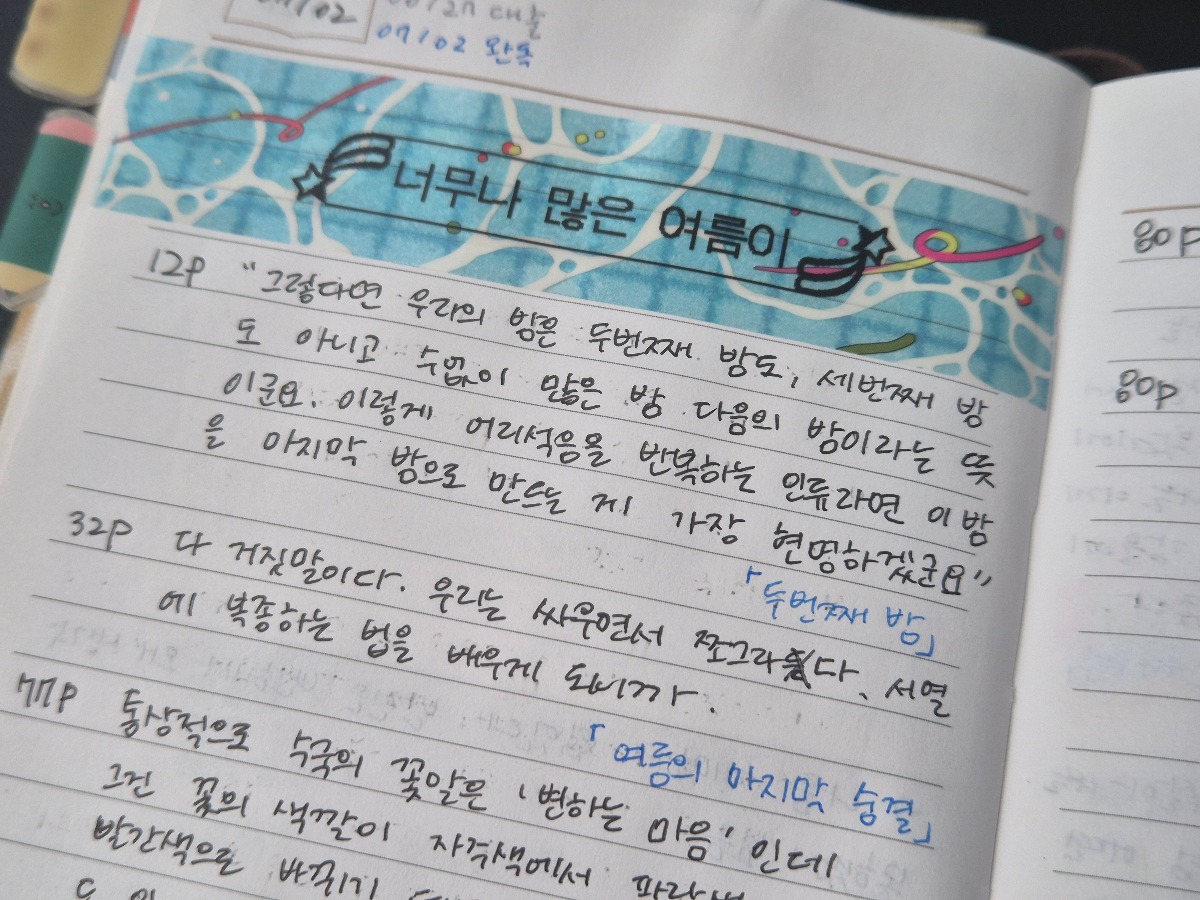 07/02
대출
07/02 완독
너무나 많은 여름이
12p "그렇다면 우리의 밤은 두번째 밤도, 세번째 밤
도 아니고 수없이 많은 밤 다음의 밤이라는 뜻
이군요. 이렇게 어리석음을 반복하는 인류라면 이 밤
을 마지막 밤으로 만드는 게 가장 현명하겠군요"
「두번째 밤」
32p 다 거짓말이다. 우리는 싸우면서 쪼그라든다. 서열
에 복종하는 법을 배우게 되니까.
「여름의 마지막 숨결」
77p 통상적으로 수국의 꽃말은 '변하는 마음' 인데
그건 꽃의 색깔이 자주색에서 파란색
발간색으로 바뀌기
80p
80p